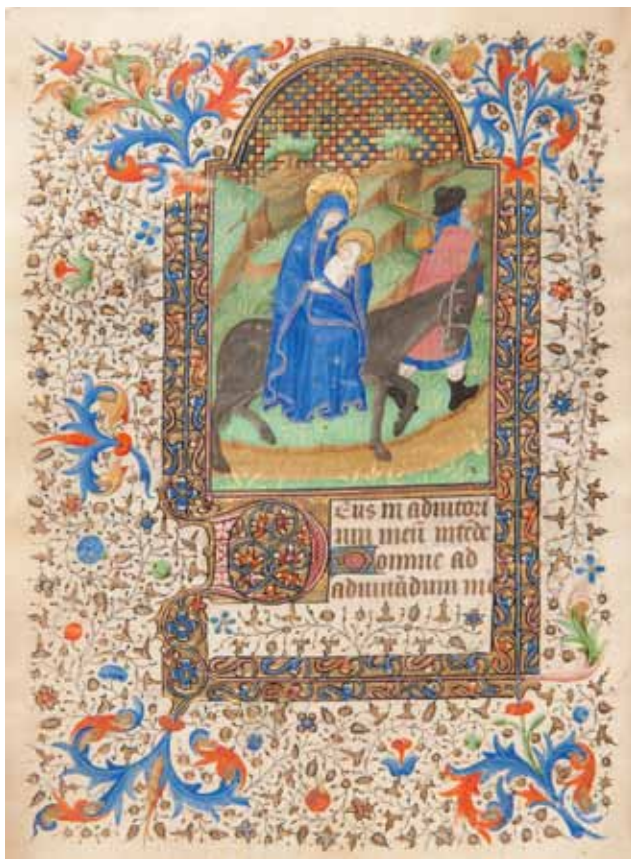 Deus in adiutori
um meū intēde
Domine ad
adiuuādum me